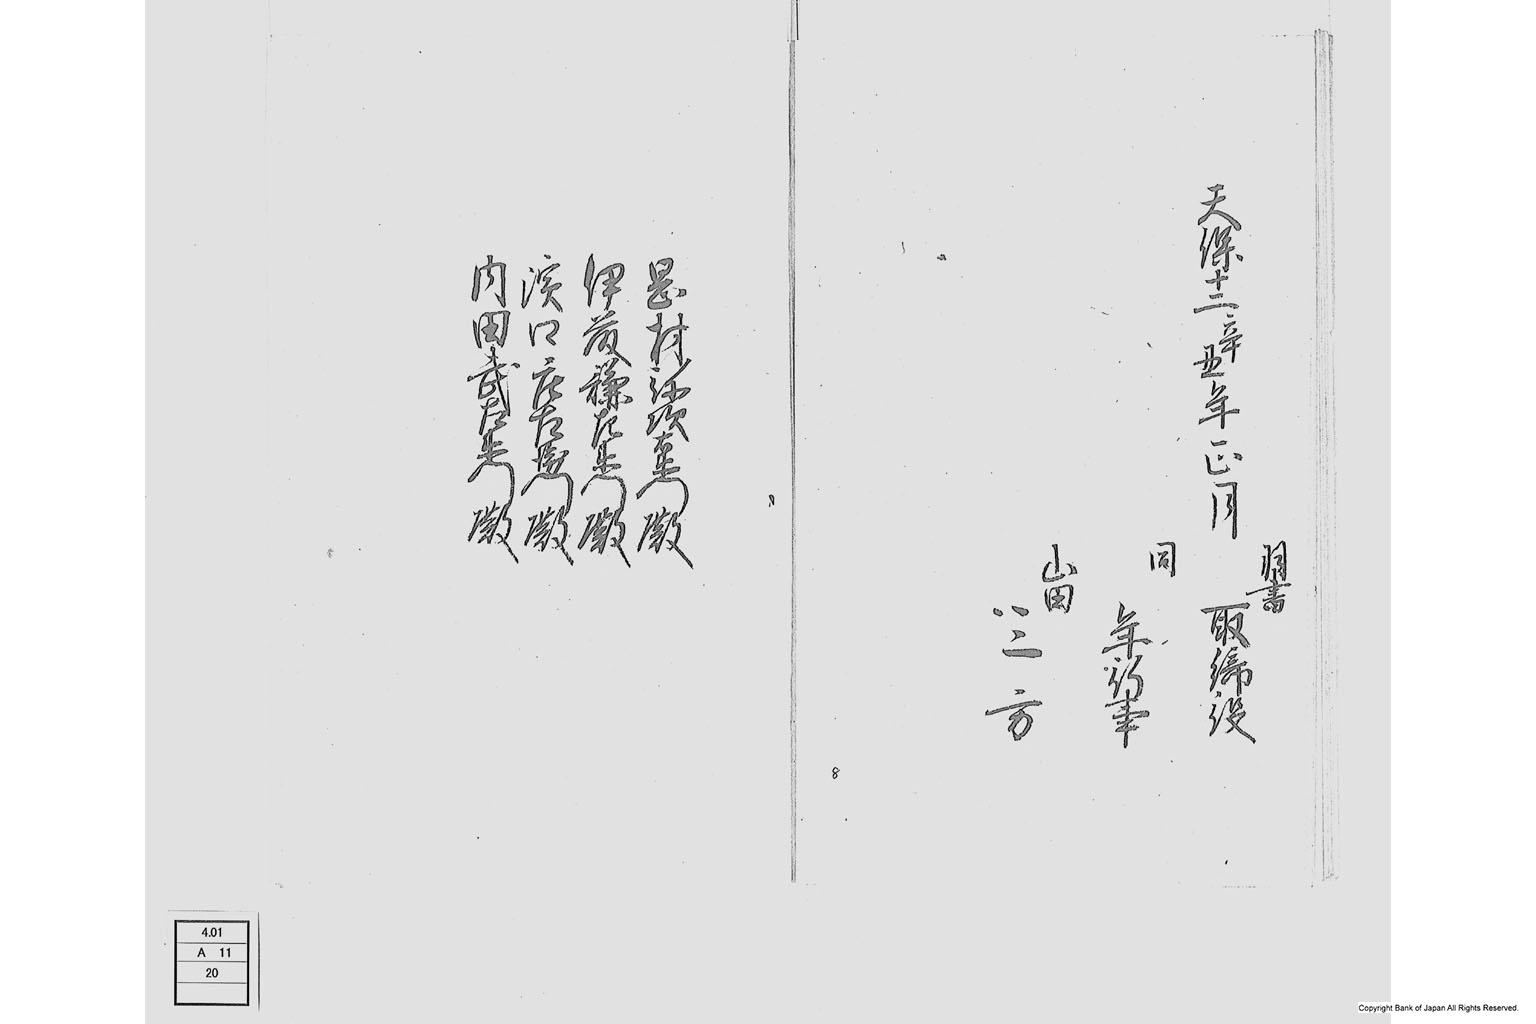 天保十二辛丑年正月
羽書
取締役
同
年行事
山田
三方
岡村
殿
伊藤
左衛門殿
濱口庄右衛門殿
内田武左衛門殿
8
4.01
A 11
20
Copyright Bank of Japan All Rights Reserved.